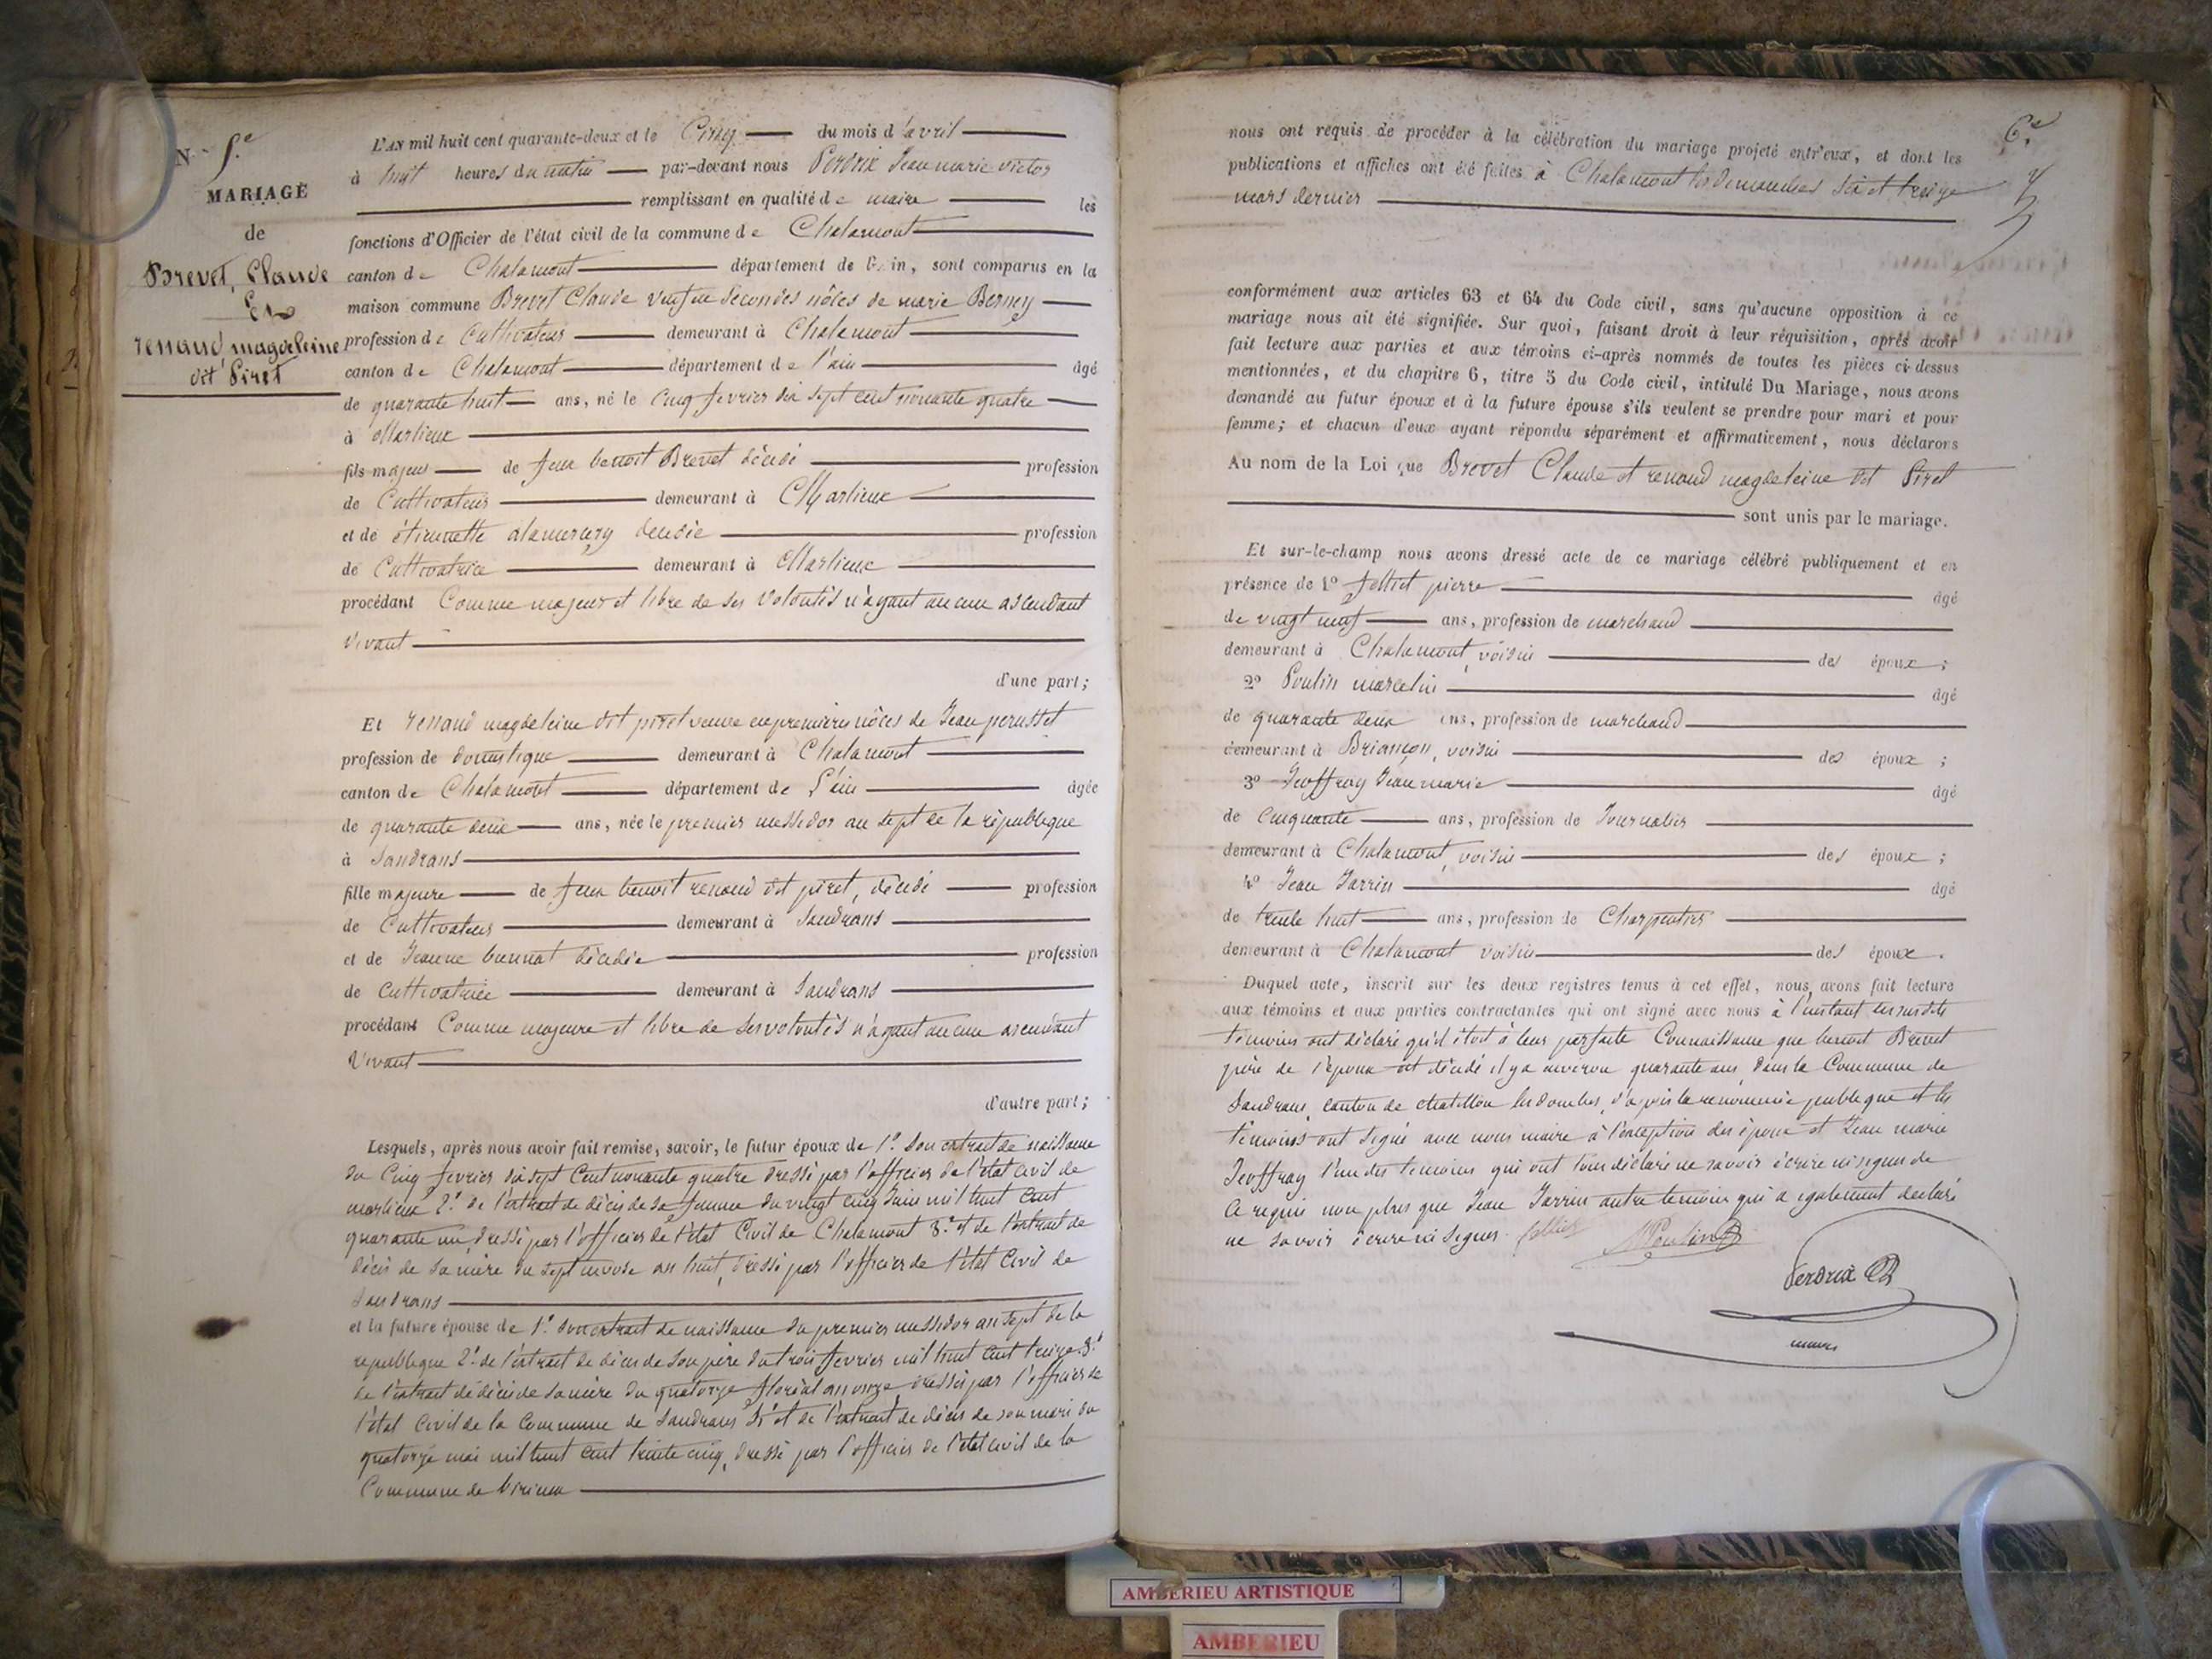 N 5.e
MARIAGE
de
Brevet, Claude
Et
renaud magdeleine
dit Piret
L'AN mil huit cent quarante-deux et le Cinq du mois d'avril
à huit heures du matin par-devant nous Perdrix Jean marie victor
remplissant en qualité de maire les
fonctions d'Officier de l'état civil de la commune de Chalamont
canton de Chalamont département de l'Ain, sont comparus en la
maison commune Brevet Claude veuf en Secondes nôces de marie Berney
profession de Cultivateur demeurant à Chalamont
canton de Chalamont département de l'ain âgé
de quarante huit ans, né le Cinq fevrier dix sept cent nonante quatre
à Marlieux
fils majeur de feu benoit Brevet décédé profession
de Cultivateur demeurant à Marlieux
et de étiennette alamercery décédée profession
de Cultivatrice demeurant à Marlieux
procédant Comme majeur et libre de ses volontés n'ayant aucun ascendant
vivant
d'une part;
Et renaud magdeleine dit piret veuve en premieres nôces de Jean perusset
profession de domestique demeurant à Chalamont
canton de Chalamont département de l'ain âgée
de quarante deux ans, née le premier messidor an sept de la république
à Sandrans
fille majeure de feux benoit renaud dit piret, décédé profession
de Cultivateur demeurant à Sandrans
et de Jeanne décédée profession
de Cultivatrice demeurant à Sandrans
procédant Comme majeure et libre de ses volontés n'ayant aucun ascendant
Vivant
d'autre part;
Lesquels, après nous avoir fait remise, savoir, le futur époux de 1.º Son extrait de naissance
du Cinq fevrier dix sept Cent nonante quatre dressé par l'officier de l'état civil de
marlieux 2.º de l'extrait de décès de sa femme du vingt cinq Juin mil huit Cent
quarante un, dressé par l'officier de l'état Civil de Chalamont 3.º et de l'extrait de
décès de sa mère du sept nivose an huit, dressé par l'officier de l'état Civil de
Sandrans
et la future épouse de 1.º Son extrait de naissance du premier messidor an sept de la
republique 2.º de l'extrait de décès de Son père du trois fevrier mil huit Cent treize 3.º
de l'extrait de décès de sa mère du quatorze floréal an onze dressés par l'officier de
l'état Civil de la Commune de Sandrans et de l'extrait de décès de son mari du
quatorze mai mil huit Cent trente cinq, dressé par l'officier de l'état civil de la
Commune de Virieux
6.e
nous ont requis de procéder à la célébration du mariage projeté entr'eux, et dont les
publications et affiches ont été faites à Chalamont les dimanches six et treize
mars dernier
conformément aux articles 63 et 64 du Code civil, sans qu'aucune opposition à ce
mariage nous ait été signifiée. Sur quoi, faisant droit à leur réquisition, après avoir
fait lecture aux parties et aux témoins ci-après nommés de toutes les pièces ci-dessus
mentionnées, et du chapitre 6, titre 5 du Code civil, intitulé Du Mariage, nous avons
demandé au futur époux et à la future épouse s'ils veulent se prendre pour mari et pour
femme; et chacun d'eux ayant répondu séparément et affirmativement, nous déclarons
Au nom de la Loi que Brevet Claude et renaud magdeleine dit Piret
sont unis par le mariage.
Et sur-le-champ nous avons dressé acte de ce mariage célébré publiquement et en
présence de 1º pierre âgé
de vingt neuf ans, profession de marchand
demeurant à Chalamont, voisin des époux;
2º Poulin marcelin âgé
de quarante deux ans, profession de marchand
demeurant à Briançon, voisin des époux;
3º Jeoffray Jean marie âgé
de Cinquante ans, profession de Journalier
demeurant à Chalamont, voisin des époux;
4º Jean Jarrin âgé
de trente huit ans, profession de Charpentier
demeurant à Chalamont voisin des époux.
Duquel acte, inscrit sur les deux registres tenus à cet effet, nous avons fait lecture
aux témoins et aux parties contractantes qui ont signé avec nous à l'instant les susdits
témoins ont déclaré qu'il étoit à leur parfaite Connaissance que benoit Brevet
père de l'époux est décédé il y a environ quarante ans, dans la Commune de
Sandrans, canton de chatillon les dombes, d'après la renommée publique et les
témoins ont signé avec nous maire à l'exception des époux et Jean marie
Jeoffray l'un des temoins qui ont tous déclaré ne savoir écrire ni signer de
Ce requis non plus que Jean Jarrin autre temoin qui a egalement declaré
ne savoir écrire ni Signer. MPoulin
Perdrix
maire
AMBERIEU ARTISTIQUE
AMBERIEU